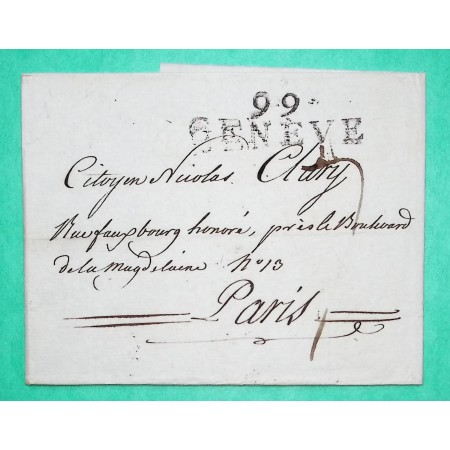 99
GENEVE
Citoyen Nicolas Clary
Rue fauxbourg honoré, près le Boulevard
de la Magdelaine No 13
Paris